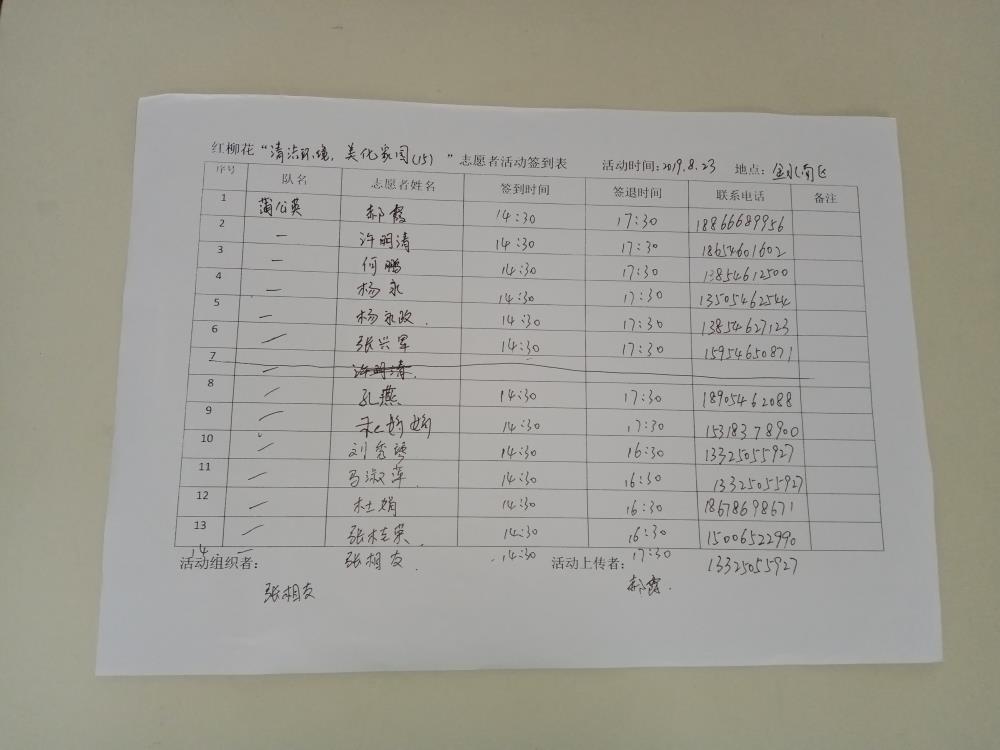 红柳花“清洁环境,美化家园(15)”志愿者活动签到表 活动时间:2019.8.23 地点:金水南区
序号 队名 志愿者姓名 签到时间 签退时间 联系电话 备注
1 蒲公英 郝霞 14:30 17:30 18866689956
2 一 许明清 14:30 17:30 18654601602
3 一 何鹏 14:30 17:30 13854612500
4 一 杨永 14:30 17:30 13505462544
5 一 杨永政. 14:30 17:30 13854627123
6 一 张兴军 14:30 17:30 15954650871
7 一 许明清
8 一 孔燕 14:30 17:30 18905462088
9 一 14:30 17:30 15318378900
10 一 刘秀琴 14:30 16:30 13325055927
11 一 马淑萍. 14:30 16:30 13325055927
12 一 杜娟 14:30 16:30 18678698671
13 一 张桂英. 14:30 16:30 15006522990
14 一 张相友. 14:30 17:30 13325055927
活动组织者: 活动上传者:
张相友 郝霞.